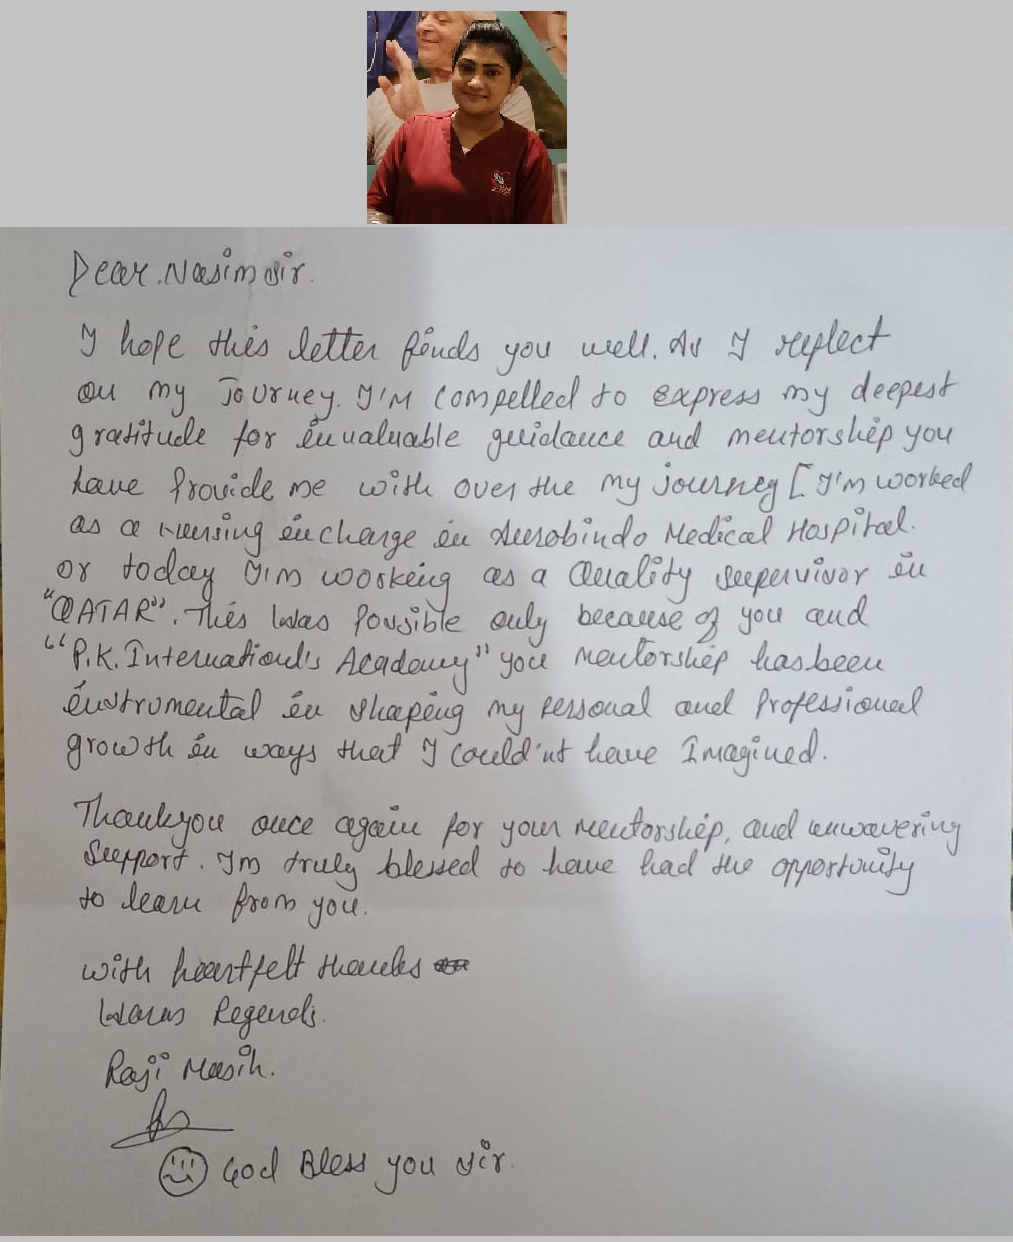 Dear. Nasim sir.
I hope this letter finds you well. As I reflect
on my Journey. I'm compelled to express my deepest
gratitude for invaluable guidance and mentorship you
have Provide me with over the my journey [I'm worked
as a nursing incharge in Aurobindo Medical Hospital.
or today I'm working as a Quality supervisor in
"QATAR". This was Possible only because of you and
"P.K. International's Academy" you mentorship has been
instrumental in shaping my personal and Professional
growth in ways that I could'nt have Imagined.
Thankyou once again for your mentorship, and unwavering
support. I'm truly blessed to have had the opportunity
to learn from you.
with heartfelt thanks
Warm Regards.
Raji Masih.
God Bless you sir.